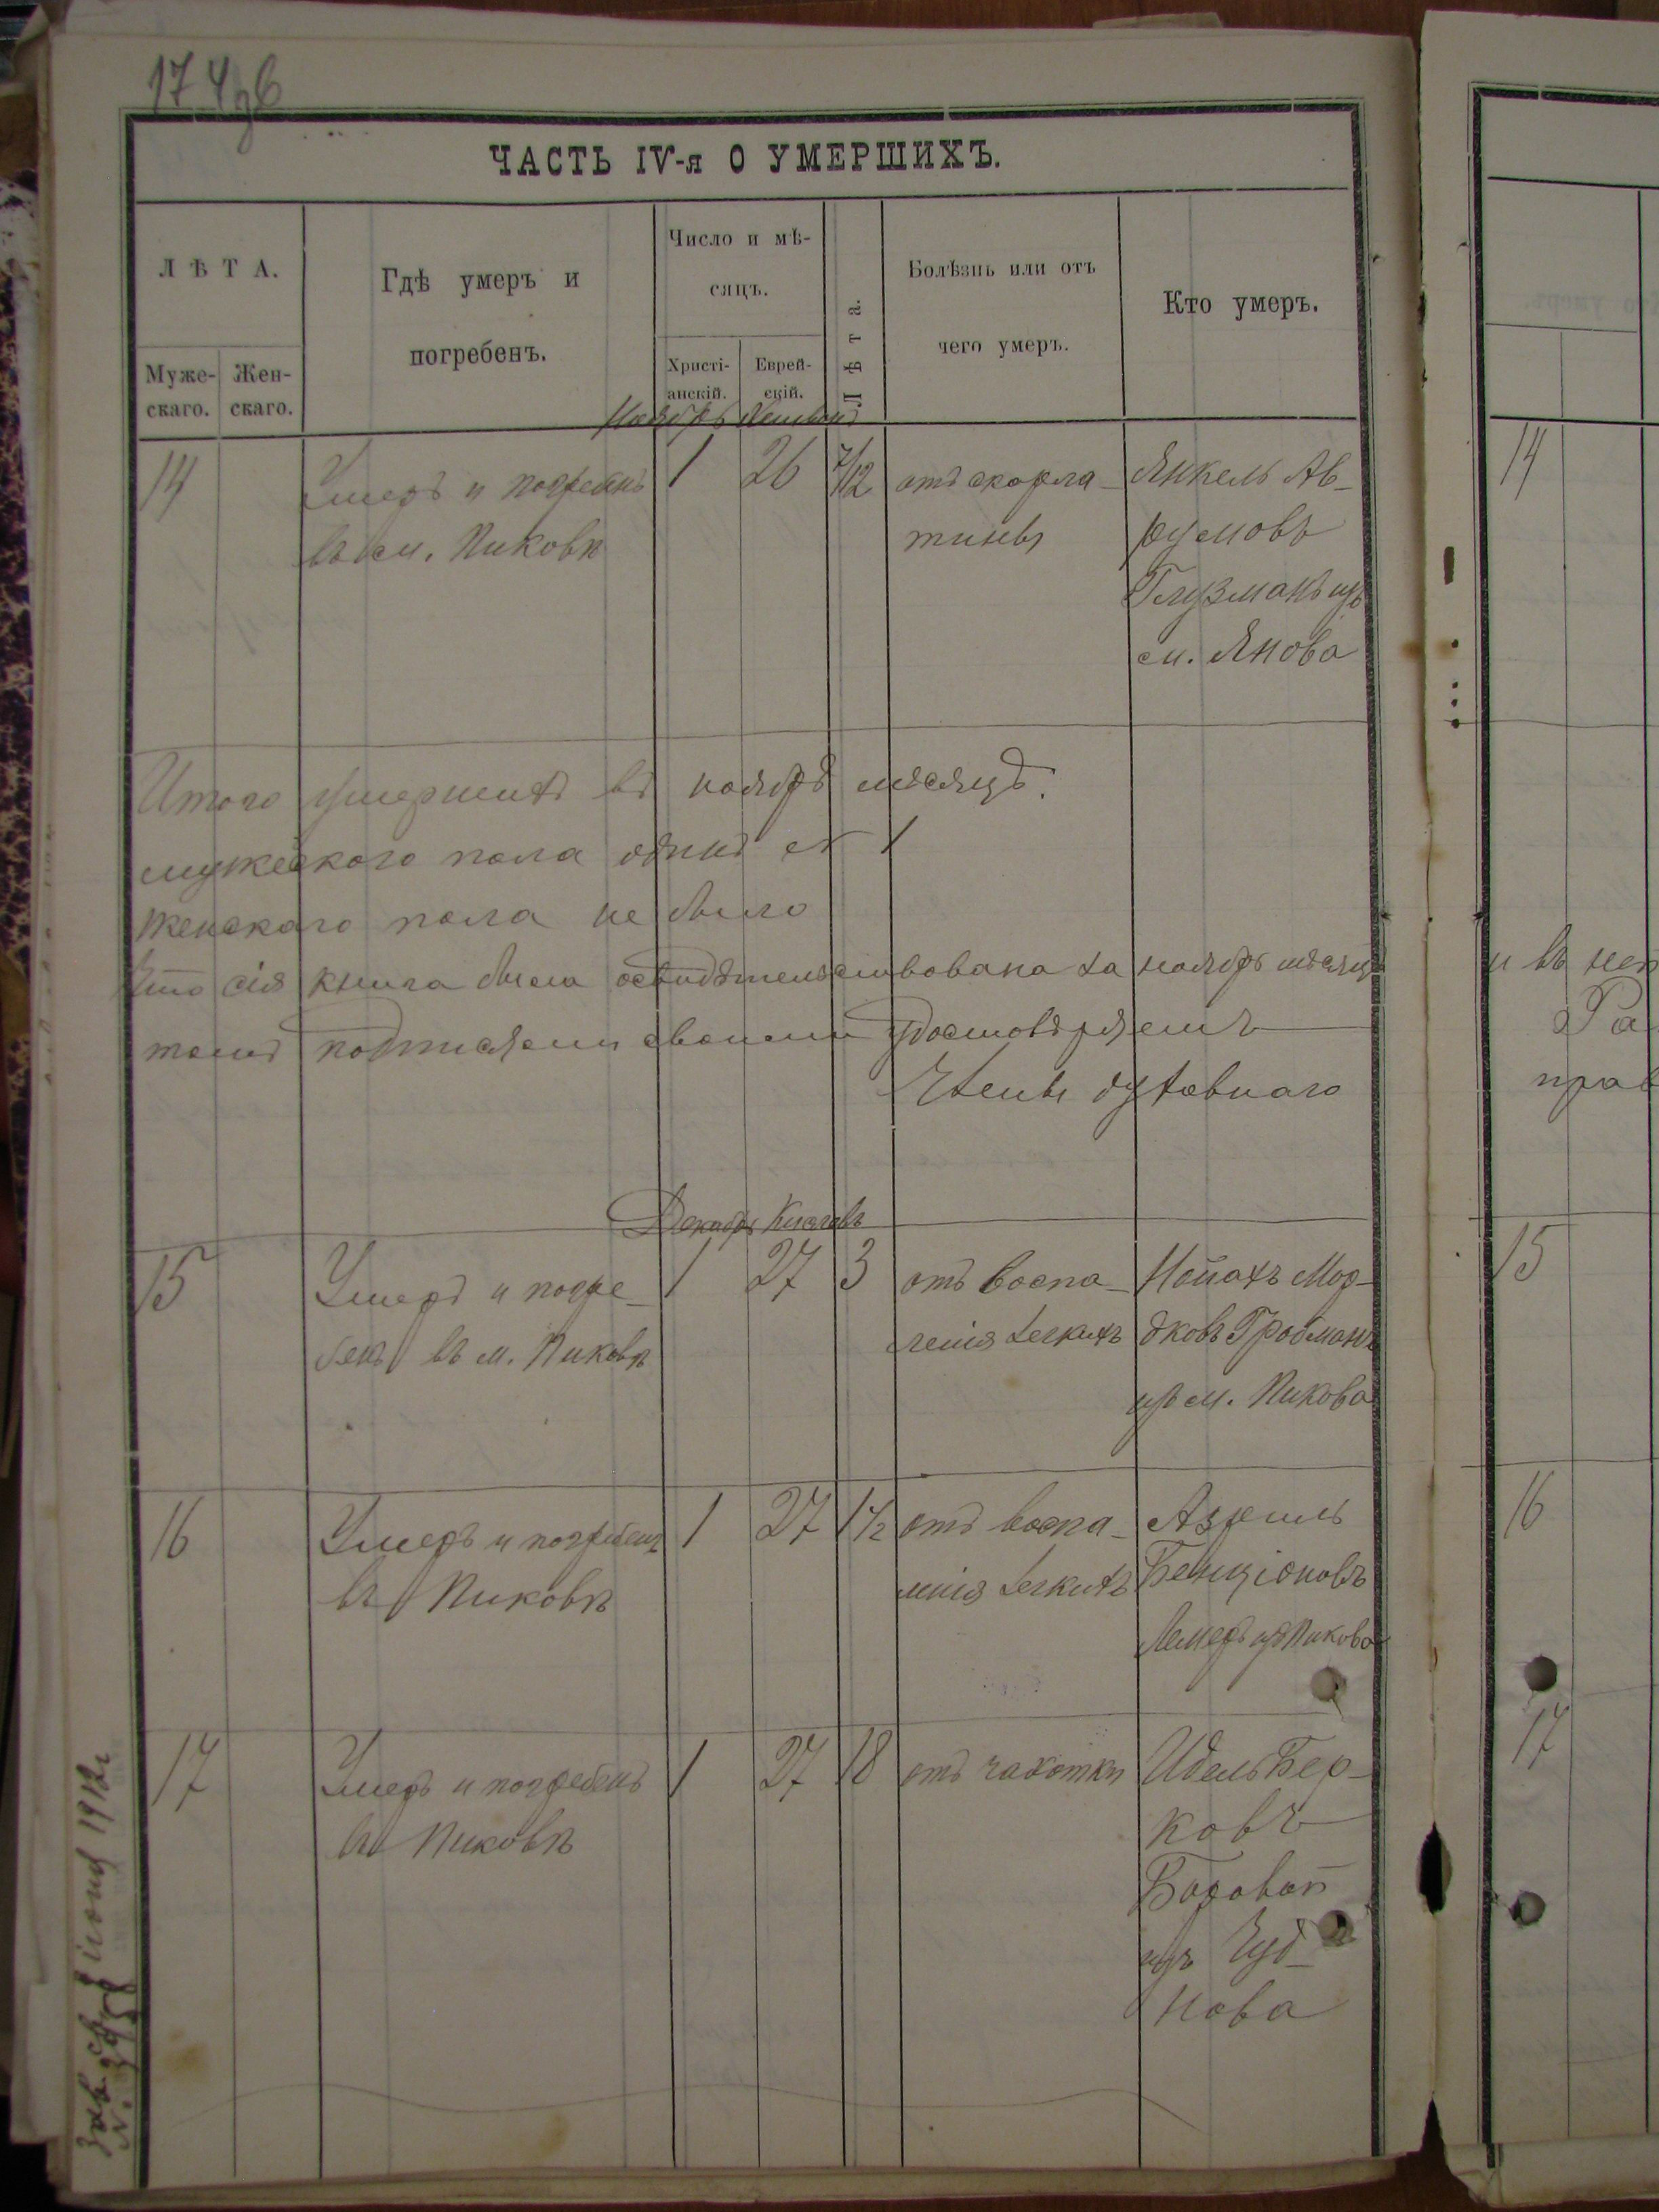 ЧАСТЬ IV-я О УМЕРШИХЪ.
ЛѢТА.
Муже-
скаго.
Жен-
скаго.
Гдѣ умеръ и
погребенъ.
Число и мѣ-
сяцъ.
Христі-
анскій.
Еврей-
скій.
Лѣта.
Болѣзнь или отъ
чего умеръ.
Кто умеръ.
Ноябрь Хешвонъ
14
Умеръ и погребенъ
въ м. Пиковѣ
1
26
7/12
отъ скарла-
тины
Янкель Ав-
румовъ
Глузманъ изъ
м. Янова
Итого умершихъ въ ноябрѣ мѣсяцѣ.
мужескаго пола одинъ № 1
женскаго пола не было
Что сія книга была освидѣтельствована за ноябрь мѣсяцъ
томъ подписями своими удостовѣряемъ
Члены духовнаго
Декабрь Кислевъ
15
Умеръ и погре-
бенъ въ м. Пиковѣ
1
27
3
отъ воспа-
ленія легкихъ
Нойахъ Мор-
дковъ Гробманъ
изъ м. Пикова
16
Умеръ и погребенъ
въ Пиковѣ
1
27
1 1/2
отъ воспа-
ленія легкихъ
Бенціоновъ
изъ Пикова
17
Умеръ и погребенъ
въ Пиковѣ
1
27
18
отъ чахотки
Идель Бер-
ковъ
Боровой
изъ Чуд-
нова
14
и въ
Ра
прав
15
16
17